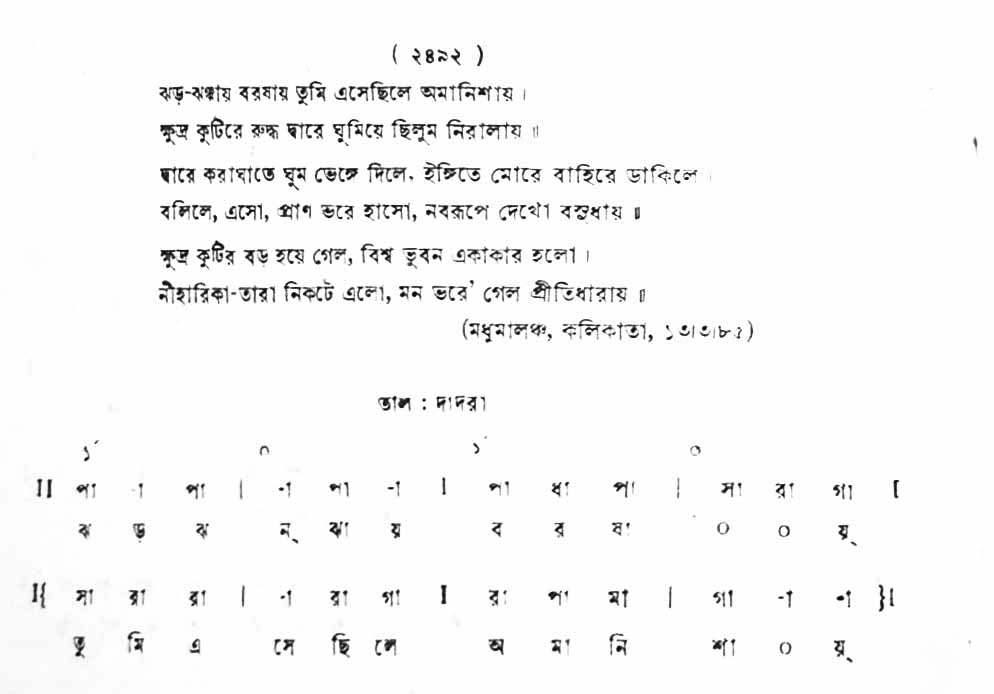 ( ২৪৯২ )
ঝড়-ঝঞ্ঝায় বরষায় তুমি এসেছিলে অমানিশায় ।
ক্ষুদ্র কুটিরে রুদ্ধ দ্বারে ঘুমিয়ে ছিলুম নিরালায় ॥
দ্বারে করাঘাতে ঘুম ভেঙ্গে দিলে, ইঙ্গিতে মোরে বাহিরে ডাকিলে ।
বলিলে, এসো, প্রাণ ভরে হাসো, নবরূপে দেখো বসুধায় ॥
ক্ষুদ্র কুটির বড় হয়ে গেল, বিশ্ব ভুবন একাকার হলো ।
নীহারিকা-তারা নিকটে এলো, মন ভরে' গেল প্রীতিধারায় ॥
(মধুমালঞ্চ, কলিকাতা, ১৩।৩।৮৫)
তাল : দাদরা
১´ ০ ১´ ০
II পা -া পা | -া পা -া I পা ধা পা | সা রা গা I
ঝ ড় ঝ ন্ ঝা য় ব র ষা ০ ০ য়্
I{ সা রা রা | -া রা গা I রা পা মা | গা -া -া }I
তু মি এ সে ছি লে অ মা নি শা ০ য়্